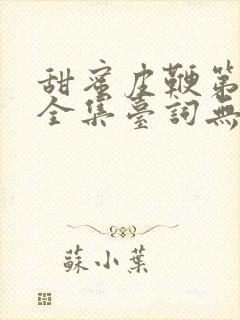 甜蜜皮鞭第
全集臺詞無
蘇小葉